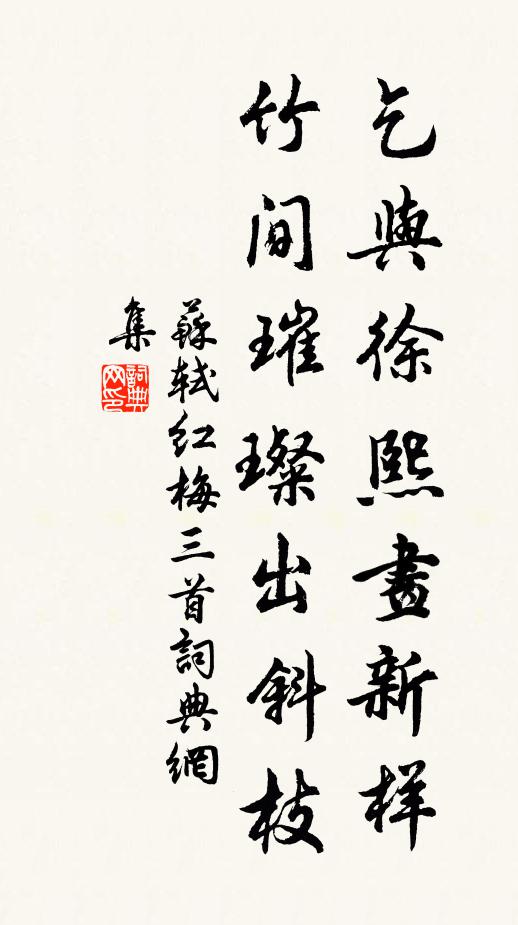 乞與徐熙畫新样
竹間璀璨出斜枝
蘇軾红梅三首詞典網
集
詞典
网印